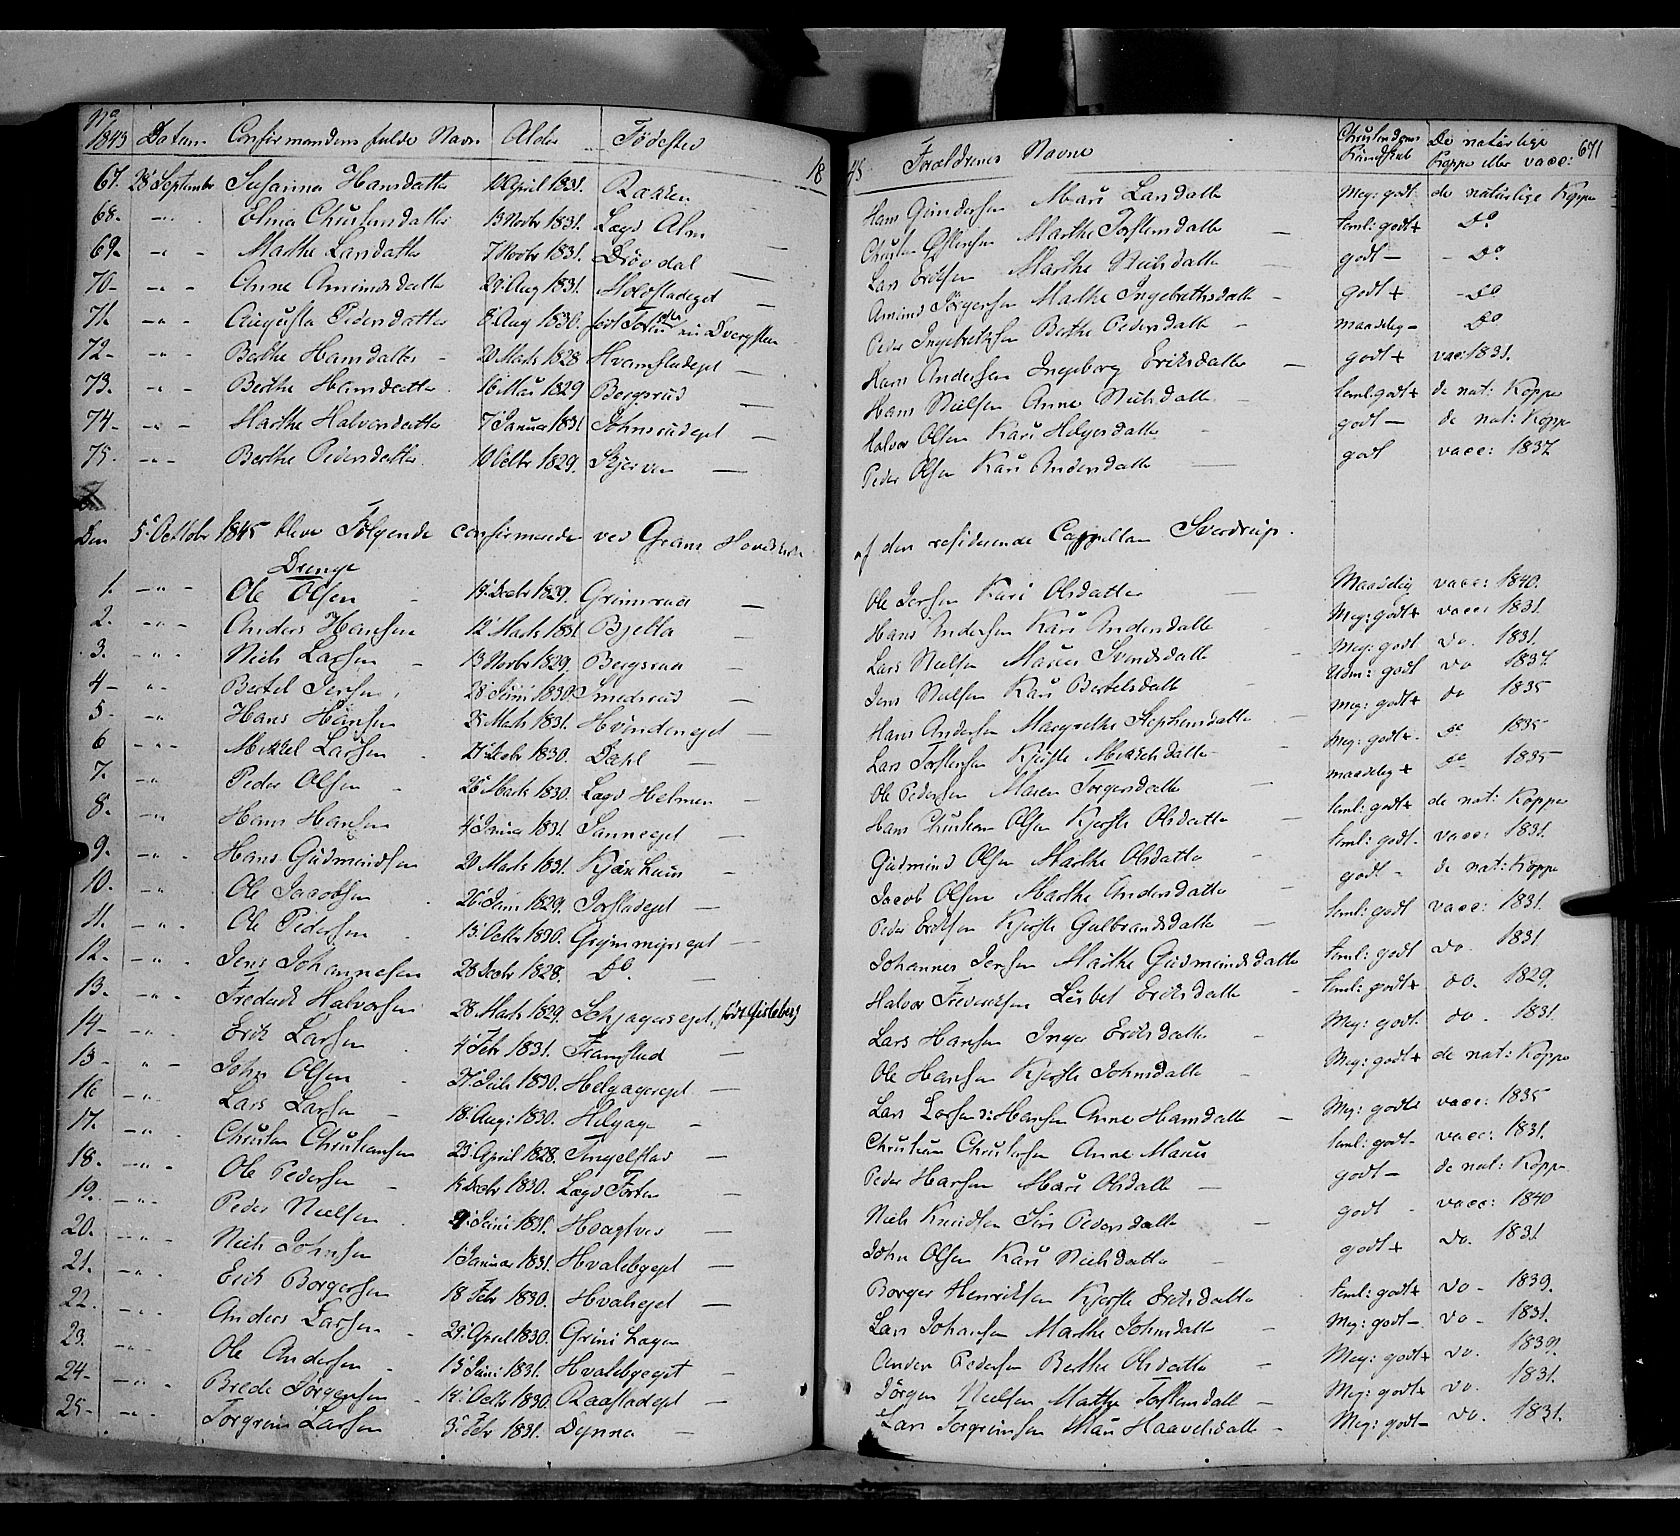 No 1845 Datum Confirmandens fulde Navn Alder Fødested 18 45 Forældrenes Navne Christendoms Kundskab De natúrlige Koppe eller vacc: 671
67. 28 Septembr Susanna Hansdatter 10 April 1831. Raaken Hans Gúndersen Mari Larsdatter Meg: godt de natúrlige Koppe
68. -"- Elina Christensdatter 13 Novbr 1831. Lægd Alm Marthe Torstensdatter Teml: godt+ Do
69. -"- Marthe Larsdatter 7 Novbr 1831. Lars Eriksen Marthe Nielsdatter godt - Do
70. -"- Anne Amúndsdatter 29 Aug 1831. Amúnd Jörgensen Marthe Ingebrethsdatter godt + Do
71. -"- Augusta Pedersdatter 8 Aug 1830. Peder Ingebrethsen Berthe Pedersdatter maadelig - Do
72. -"- Berthe Hansdatter 20 Marts 1828 Hans Andersen Ingeborg Eriksdatter godt + vac: 1831.
73. -"- Berthe Hansdatter 16 Mai 1829 Bergsrúd Hans Nielsen Anne Nielsdatter Teml: godt+ de nat: Koppe
74. -"- Marthe Halvorsdatter 7 Januar 1831 Johnsrúdeget Halvor Olsen Kari Helgesdatter godt - de nat: Koppe
75. -"- Berthe Pedersdatter 10 Octbr 1829. Skjerven Peder Olsen Kari Andersdatter godt vacc: 1837
Den 5 October 1845 bleve Følgende confirmerede ved Grans Hovedkirke af den residerende Capellan Sverdrup.
Drenge
1. -"- Ole Olsen 19 Decbr 1829. Grimsrúd Ole Jensen Kari Olsdatter Maadelig vacc: 1840.
2. -"- Anders Hansen 12 Marts 1831 Bjella Hans Andersen Kari Andersdatter Meg: godt+ vacc: 1831.
3. -"- Niels Larsen 13 Novbr 1829. Bergsrúd Lars Nielsen Maren Svendsdatter Meg: godt do. 1831.
4 -"- Bertel Jensen 28 Júni 1830. Smedsrúd Jens Nielsen Kari Bertelsdatter Udm: godt do 1837.
5. -"- Hans Hansen 25 Marts 1831. Hvindeneget Hans Andersen Margrethe Stephensdatter meg: godt+ do 1835
6 -"- Mikkel Larsen 1830. Dahl Lars Torstensen Kjersti Mikkelsdatter Meg: godt+ do 1835
7. -"- Peder Olsen 26 Marts 1830. Lægd Helmen Ole Pedersen Maren Torgersdatter maadelig + do 1835
8. -"- Hans Hansen 4 Janúar 1831. Sanneeget Hans Christian Olsen Kjersti Olsdatter Teml: godt+ de nat: Koppe
9. -"- Hans Gúdmúndsen 20 Marts 1831. Gúdmúnd Olsen Marthe Olsdatter Teml: godt- vacc: 1831.
10. -"- Ole Jacobsen 26 Júni 1829. Jorstadeget Jacob Olsen Marthe Andersdatter godt - de nat: Koppe
11. -"- Ole Pedersen 13 Octbr 1830. Peder Eriksen Kjersti Gulbrandsdatter Teml: godt vacc: 1831.
12. -"- Jens Johannesen 28 Decbr 1828. Do Johannes Jensen Marthe Gúdmúndsdatter Teml: godt do. 1831
13. -"- Frederik Halvorsen 28 Marts 1829. Schjagerseget, født Gisleberg Halvor Frederiksen Lisbet Eriksdatter Teml: godt+ do. 1829.
14 -"- Erik Larsen 4 Febr 1831. Framstad Lars Hansen Inger Eriksdatter Meg: godt. do. 1831.
15 -"- John Olsen 1830. Helgageeget Ole Hansen Kjersti Johnsdatter Meg: godt+ de nat: Koppe
16 -"- Lars Larsen 18 Aug: 1830. Helgage Lars Larsen v: Hansen Anne Hansdatter Meg: godt+ vacc: 1835
17. -"- Christen Christiansen 23 April 1828. Tingelstad Christian Christensen Anne Maria Teml: godt- vacc: 1831.
18. -"- Ole Pedersen Decbr 1830. Lægd Peder Hansen Mari Olsdatter godt - de nat: Koppe
19. -"- Peder Nielsen 9 Júni 1831. Niels Knúdsen Siri Pedersdatter godt - vacc: 1840
20. -"- Niels Johnsen 1 Janúar 1831. Hvalebyeget John Olsen Kari Nielsdatter godt + do. 1831
21. -"- Erik Borgersen 18 Febr 1830. Hvalseget Borger Henriksen Kjersti Eriksdatter Teml: godt+ do - 1839.
22. -"- Anders Larsen 29 April 1830. Grini hagen Lars Johansen Marthe Johnsdatter Meg: godt- do - 1831.
23. -"- Ole Andersen 13 Júni 1831. Hvalebyeget Anders Pedersen Berthe Olsdatter Meg: godt+ do. 1839.
24- -"- Brede Jörgensen 14 Octbr 1830. Raastadeget Jörgen Nielsen Mathea Torstensdatter Meg: godt+ do. 1831.
25- -"- Torgrim Larsen 3 Febr 1831. Dynna Lars Torgrimsen Mari Haavelsdatter Meg: godt- do. 1831.